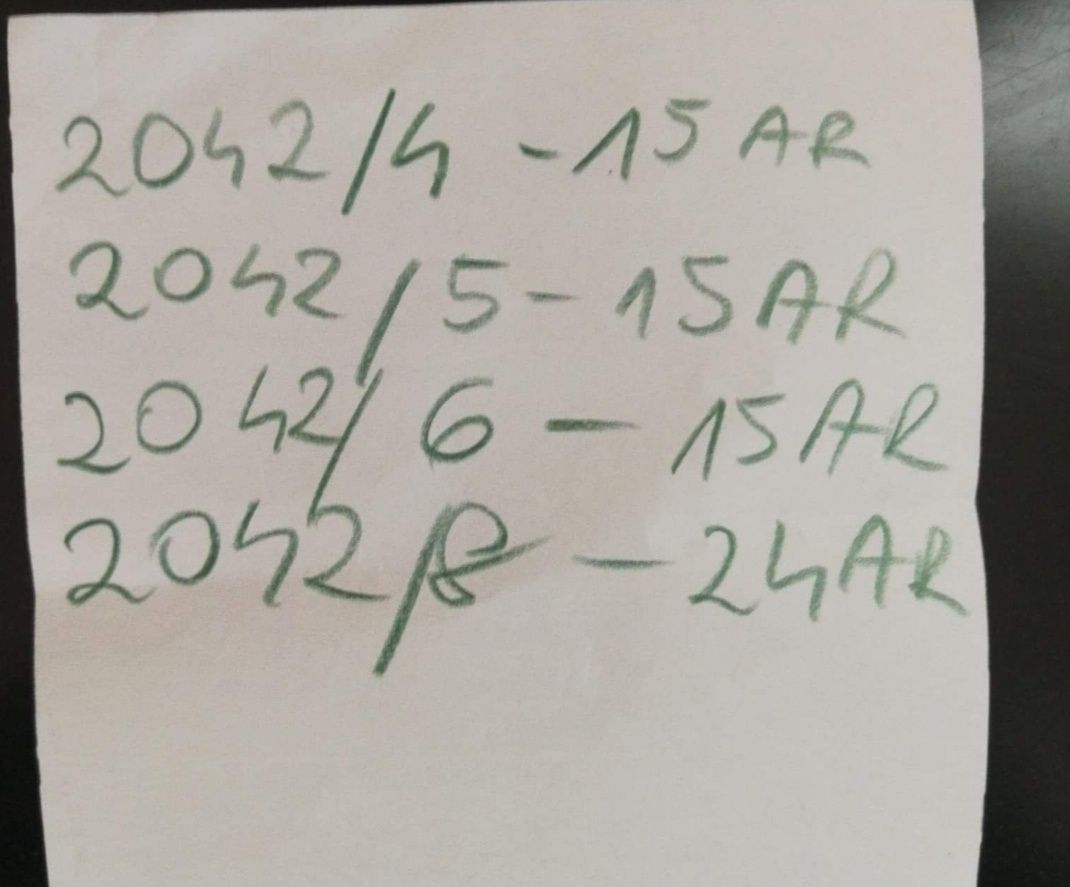 2042/4 - 15 AR
2042/5 - 15 AR
2042/6 - 15 AR
2042/8 - 24 AR